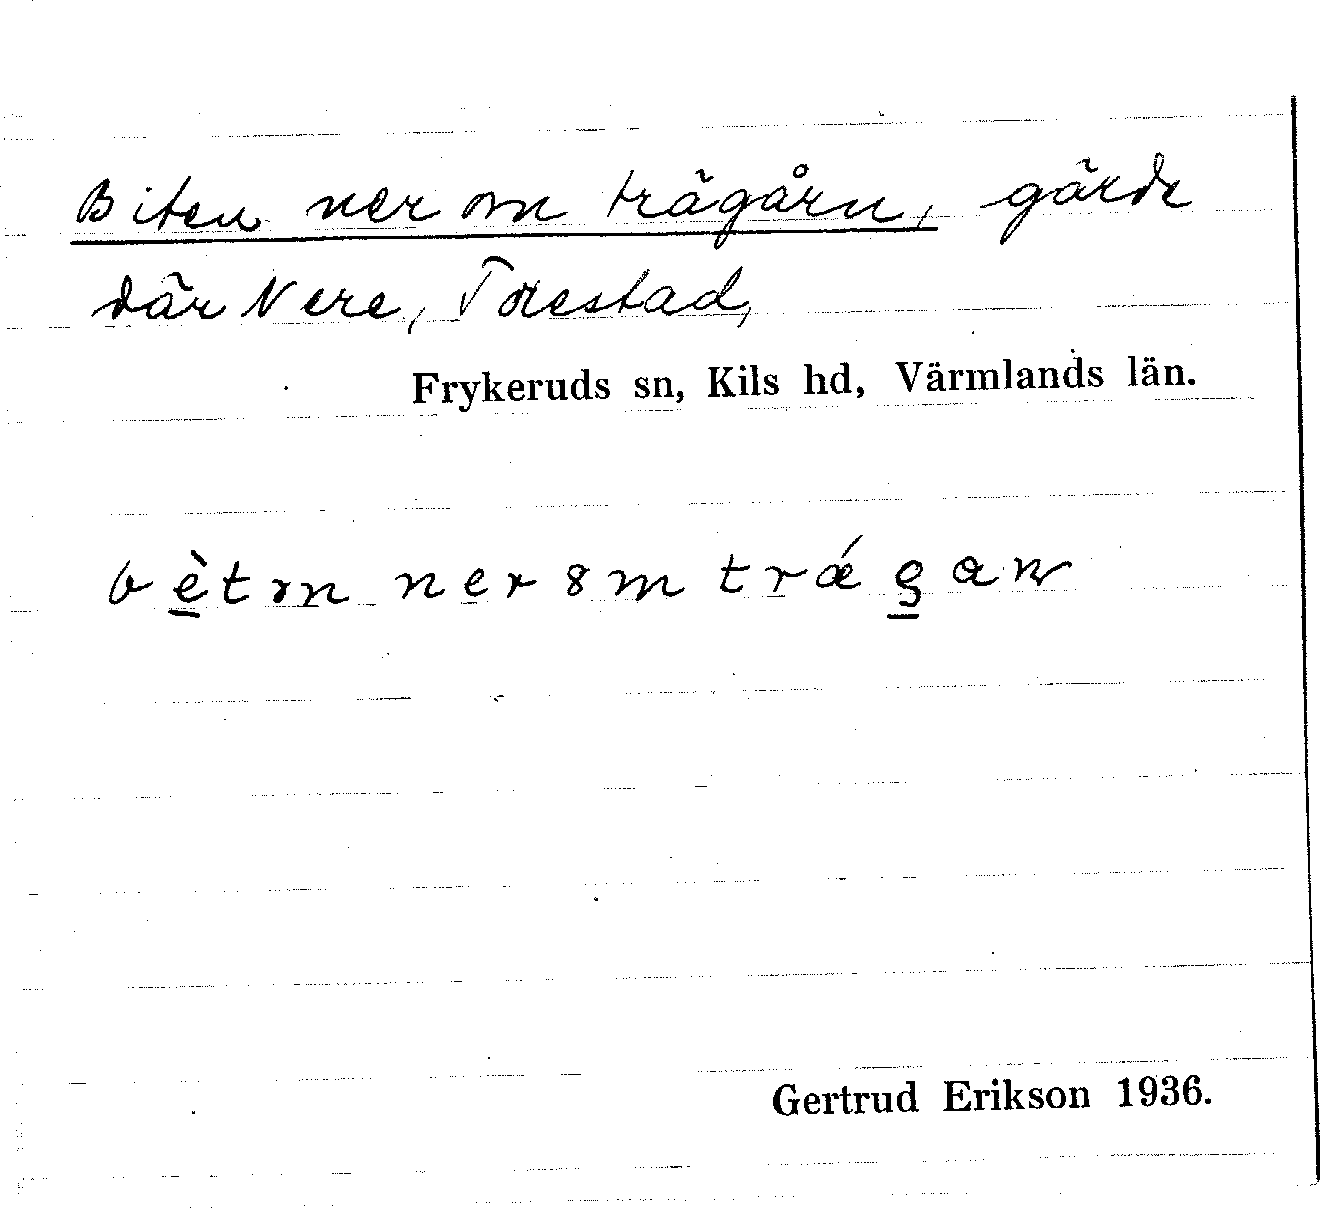 Biten ner om trägårn, gärde
där Nere, Torestad,
Frykeruds sn, Kils hd, Värmlands län.
bètɪn ner om trǽgaɳ
Gertrud Erikson 1936.